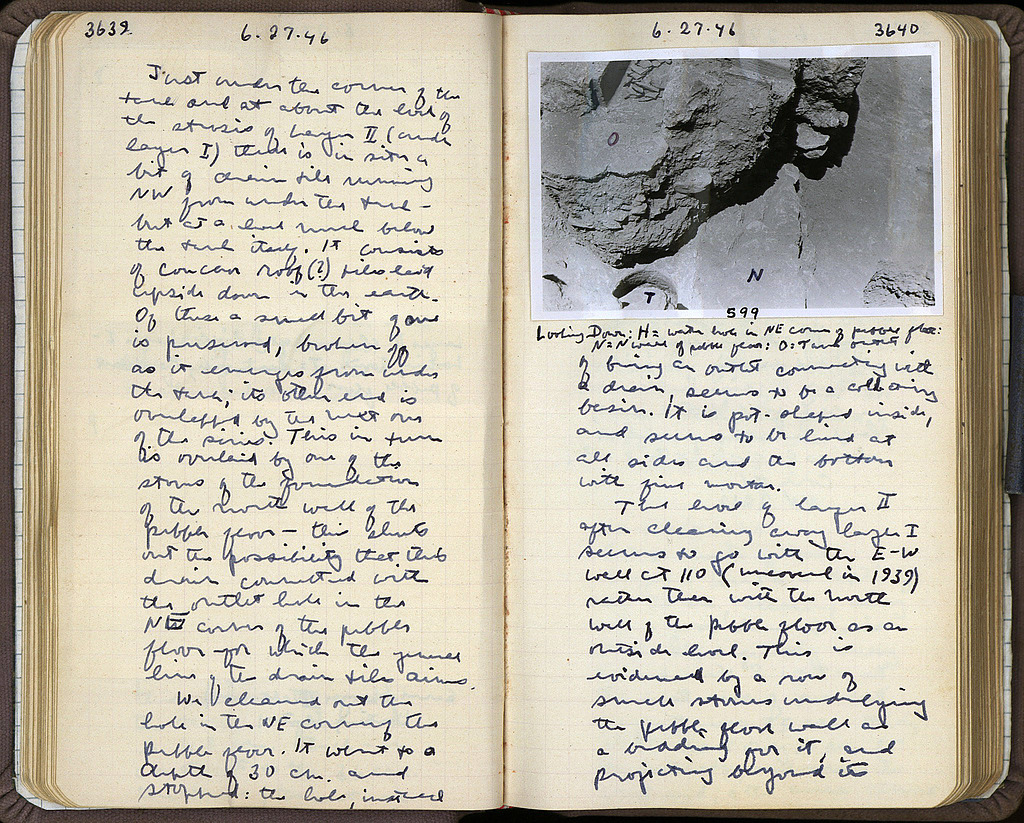 3639
6·27·46
Just under the corner of the
tank and at about the level of
the strosis of Layer II (under
layer I) there is in situ a
bit of drain tile running
NW from under the tank –
but at a level much below
the tank itself. It consists
of concave roof (?) tiles laid
upside down in the earth.
Of these a small bit of one
is preserved, broken
as it emerges from under
the tank; its other end is
overlapped by the next one
of the series. This in turn
is overlaid by one of the
stones of the foundation
of the north wall of the
pebble floor – this shuts
out the possibility that this
drain connected with
the outlet hole in the
NE corner of the pebble
floor – for which the general
line of the drain tiles aims.
We cleaned out the
hole in the NE corner of the
pebble floor. It went to a
depth of 30 cm. and
stopped: the hole, instead
6·27·46
3640
O
N
T
599
Looking Down: H = water hole in NE corner of pebble floor:
N = N wall of pebble floor: O = Tank outlet
of being an outlet connecting with
a drain, seems to be a collecting
basin. It is pot-shaped inside,
and seems to be lined at
all sides and the bottom
with fine mortar.
The level of layer II
after clearing away layer I
seems to go with the E-W
wall at 110 (uncovered in 1939)
rather than with the north
wall of the pebble floor as an
outside level. This is
evidenced by a row of
small stones underlying
the pebble floor wall as
a bedding for it, and
projecting beyond its